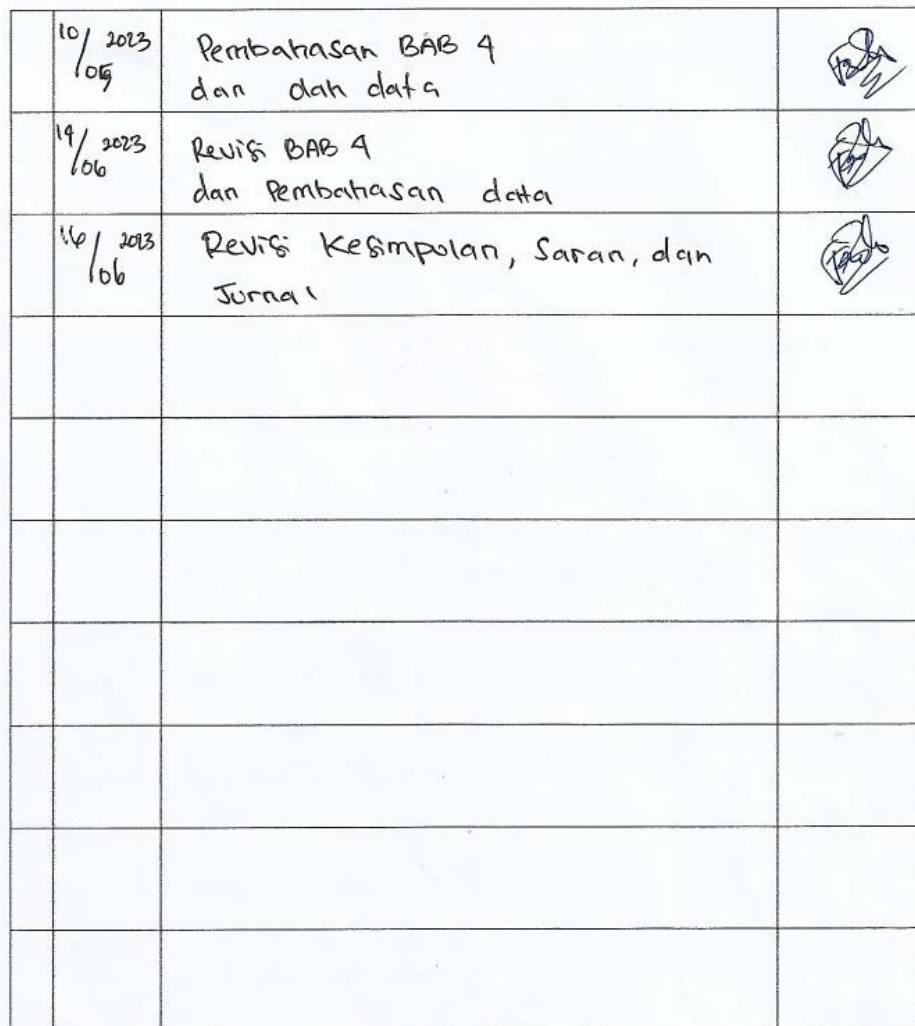 10/ 2023
/05
Pembahasan BAB 4
dan olah data
14/ 2023
/06
Revisi BAB 4
dan Pembahasan data
16/ 2023
/06
Revisi Kesimpulan, Saran, dan
Jurnal